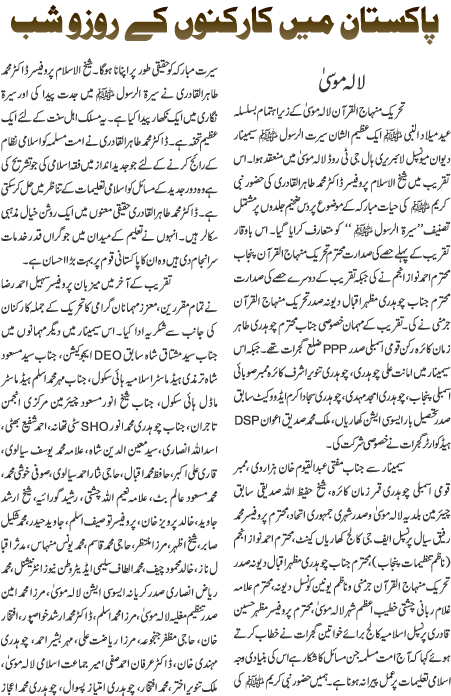 پاکستان میں کارکنوں کے روز و شب
لالہ موسیٰ
تحریک منہاج القرآن لالہ موسیٰ کے زیر اہتمام بسلسلہ
عید میلاد النبی ﷺ ایک عظیم الشان سیرت الرسول ﷺ سیمینار
دیوان میونسپل لائبریری ہال جی ٹی روڈ لالہ موسیٰ میں منعقد ہوا۔ اس
تقریب میں شیخ الاسلام پروفیسر ڈاکٹر محمد طاہر القادری کی حضور نبی
کریم ﷺ کی حیات مبارکہ کے موضوع پر دس ضخیم جلدوں پر مشتمل
تصنیف ”سیرۃ الرسول ﷺ“ کو متعارف کرایا گیا۔ اس باوقار
تقریب کے پہلے حصے کی صدارت محترم تحریک منہاج القرآن پنجاب
محترم احمد نواز انجم نے کی جبکہ تقریب کے دوسرے حصے کی صدارت
محترم جناب چوہدری مظہر اقبال دیونہ صدر تحریک منہاج القرآن
جرمنی نے کی۔ تقریب کے مہمان خصوصی جناب محترم چوہدری طاہر
زمان کائرہ رکن قومی اسمبلی صدر PPP ضلع گجرات تھے۔ جبکہ اس
سیمینار میں امانت علی چوہدری، چوہدری تنویر اشرف کائرہ ممبر صوبائی
اسمبلی پنجاب، چوہدری امجد مہدی، چوہدری سجاد اکرم ایڈووکیٹ سابق
صدر تحصیل بار ایسوسی ایشن کھاریاں، ملک محمد صدیق اعوان DSP
ہیڈ کوارٹر گجرات نے خصوصی شرکت کی۔
سیمینار سے جناب مفتی عبدالقیوم خان ہزاروی، ممبر
قومی اسمبلی چوہدری قمر زمان کائرہ، شیخ حفیظ اللہ صدیقی سابق
چیئرمین بلدیہ لالہ موسیٰ و صدر شہری جمہوری اتحاد، پروفیسر محمد
رفیق سیال پرنسپل ایف جی کالج کھاریاں کینٹ، محترم احمد نواز انجم
(ناظم تنظیمات پنجاب)، محترم جناب چوہدری محمد اقبال دیونہ صدر
تحریک منہاج القرآن جرمنی و ناظم یونین کونسل دیونہ، محترم علامہ
غلام ربانی چشتی خطیب اعظم شہر لالہ موسیٰ، محترم پروفیسر مظہر حسین
قادری پرنسپل اسلامیہ کالج برائے خواتین گجرات نے خطاب کرتے
ہوئے کہا کہ آج امت مسلمہ جن مسائل کا شکار ہے اس کی بنیادی وجہ
اسلامی تعلیمات پر عمل پیرا نہ ہونا ہے۔ ہمیں حضور نبی اکرم ﷺ کی
سیرت مبارکہ کو حقیقی طور پر اپنانا ہوگا۔ شیخ الاسلام پروفیسر ڈاکٹر محمد
طاہر القادری نے سیرۃ الرسول ﷺ میں جدت پیدا کی اور سیرۃ
نگاری میں ایک نکھار پیدا کیا۔ یہ مسلک اہل سنت کے لئے ایک عظیم
تحفہ ہے۔ ڈاکٹر محمد طاہر القادری نے امت مسلمہ کو اسلامی نظام
کے رائج کرنے کے لئے جو جدید انداز میں فقہ اسلامی کی جو تشریح کی
ہے وہ دور جدید کے مسائل کو اسلامی تعلیمات کے تناظر میں حل کر سکتی
ہے۔ ڈاکٹر محمد طاہر القادری حقیقی معنوں میں ایک روشن خیال مذہبی
سکالر ہیں۔ انہوں نے تعلیم کے میدان میں جو گراں قدر خدمات
سرانجام دی ہیں وہ ان کا پاکستانی قوم پر بہت بڑا احسان ہے۔
تقریب کے آخر میں میزبان پروفیسر سہیل احمد رضا
نے تمام مقررین، معزز مہمانان گرامی کا تحریک کے جملہ کارکنان
کی جانب سے شکریہ ادا کیا۔ اس سیمینار میں دیگر مہمانوں میں
جناب سید مشتاق شاہ سابق DEO ایجوکیشن، جناب سید مسعود
شاہ ترندی ہیڈ ماسٹر اسلامیہ ہائی سکول، جناب مہر محمد اسلم ہیڈ ماسٹر
ماڈل ہائی سکول، جناب شیخ انور مسعود چیئرمین مرکزی انجمن
تاجران، جناب چوہدری محمد انور SHO سٹی تھانہ، احمد شفیع بھٹی،
اسد اللہ انصاری، سید معین الدین شاہ، علامہ محمد یوسف سیالوی،
قاری علی اکبر، حافظ محمد اقبال، حاجی نثار احمد سیالوی، صوفی خوشی محمد،
محمد مسعود عالم بٹ، علامہ نعیم اللہ چشتی، رشید گورائیہ، شیخ ارشد
جاوید، خالد پرویز خان، پروفیسر توصیف اسلم، جاوید حیدر، محمد شکیل
صابر، شیخ اظہر، مرزا منتظر، حاجی محمد قاسم، محمد یونس منہاس، مدثر اقبال
ناز، خالد محمود چیف، محمد الطاف سلیمی ایڈیٹر وطن نیوز انٹرنیشنل، محمد
ریاض انصاری صدر کریانہ ایسوسی ایشن لالہ موسیٰ، مرزا محمد امین
صدر تنظیم مغلیہ لالہ موسیٰ، مرزا محمد اسلم، ڈاکٹر محمد ارشد خواصپور، افتخار
حسین، حاجی محمد مظفر جنجوعہ، مرزا ریاضت علی، مہر بشیر احمد، چوہدری
مہندی خان، ڈاکٹر عرفان احمد صفی امیر جماعت اسلامی لالہ موسیٰ،
ملک تنویر اختر، محمد افتخار، چوہدری امتیاز پسوال، چوہدری محمد اعجاز